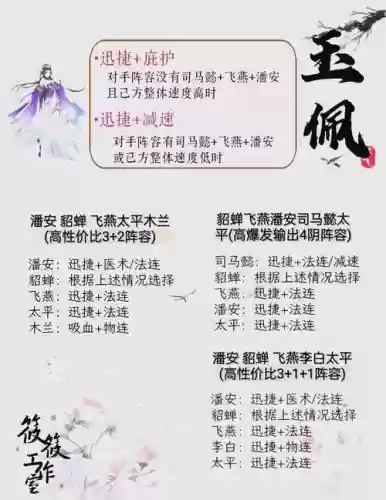 玉佩
•迅捷+庇护
对手阵容没有司马懿+飞燕+潘安
且己方整体速度高时
•迅捷+减速
对手阵容有司马懿+飞燕+潘安
或己方整体速度低时
潘安 貂蝉 飞燕太平木兰
(高性价比3+2阵容)
潘安：迅捷+医术/法连
貂蝉：根据上述情况选择
飞燕：迅捷+法连
太平：迅捷+法连
木兰：吸血+物连
貂蝉飞燕潘安司马懿太
平(高爆发输出4阴阵容)
司马懿：迅捷+法连/减速
貂蝉：根据上述情况选择
飞燕：迅捷+法连
潘安：迅捷+法连
太平：迅捷+法连
潘安 貂蝉 飞燕李白太平
(高性价比3+1+1阵容)
潘安：迅捷+医术/法连
貂蝉：根据上述情况选择
飞燕：迅捷+法连
李白：迅捷+物连
太平：迅捷+法连
筱筱工作室